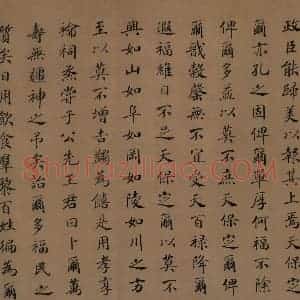 政臣能歸美以報其上焉天保定
爾亦孔之固俾爾單厚何福不除
俾爾多益以莫不庶天保定爾俾
爾戩穀罄無不宜受天百祿降爾
遐福維日不足天保定爾以莫不
興如山如阜如岡如陵如川之方
至以莫不增吉蠲為饎是用孝享
禴祠烝嘗于公先王君曰卜爾萬
壽無疆神之弔矣詒爾多福民之
質矣日用飲食羣黎百姓徧為爾